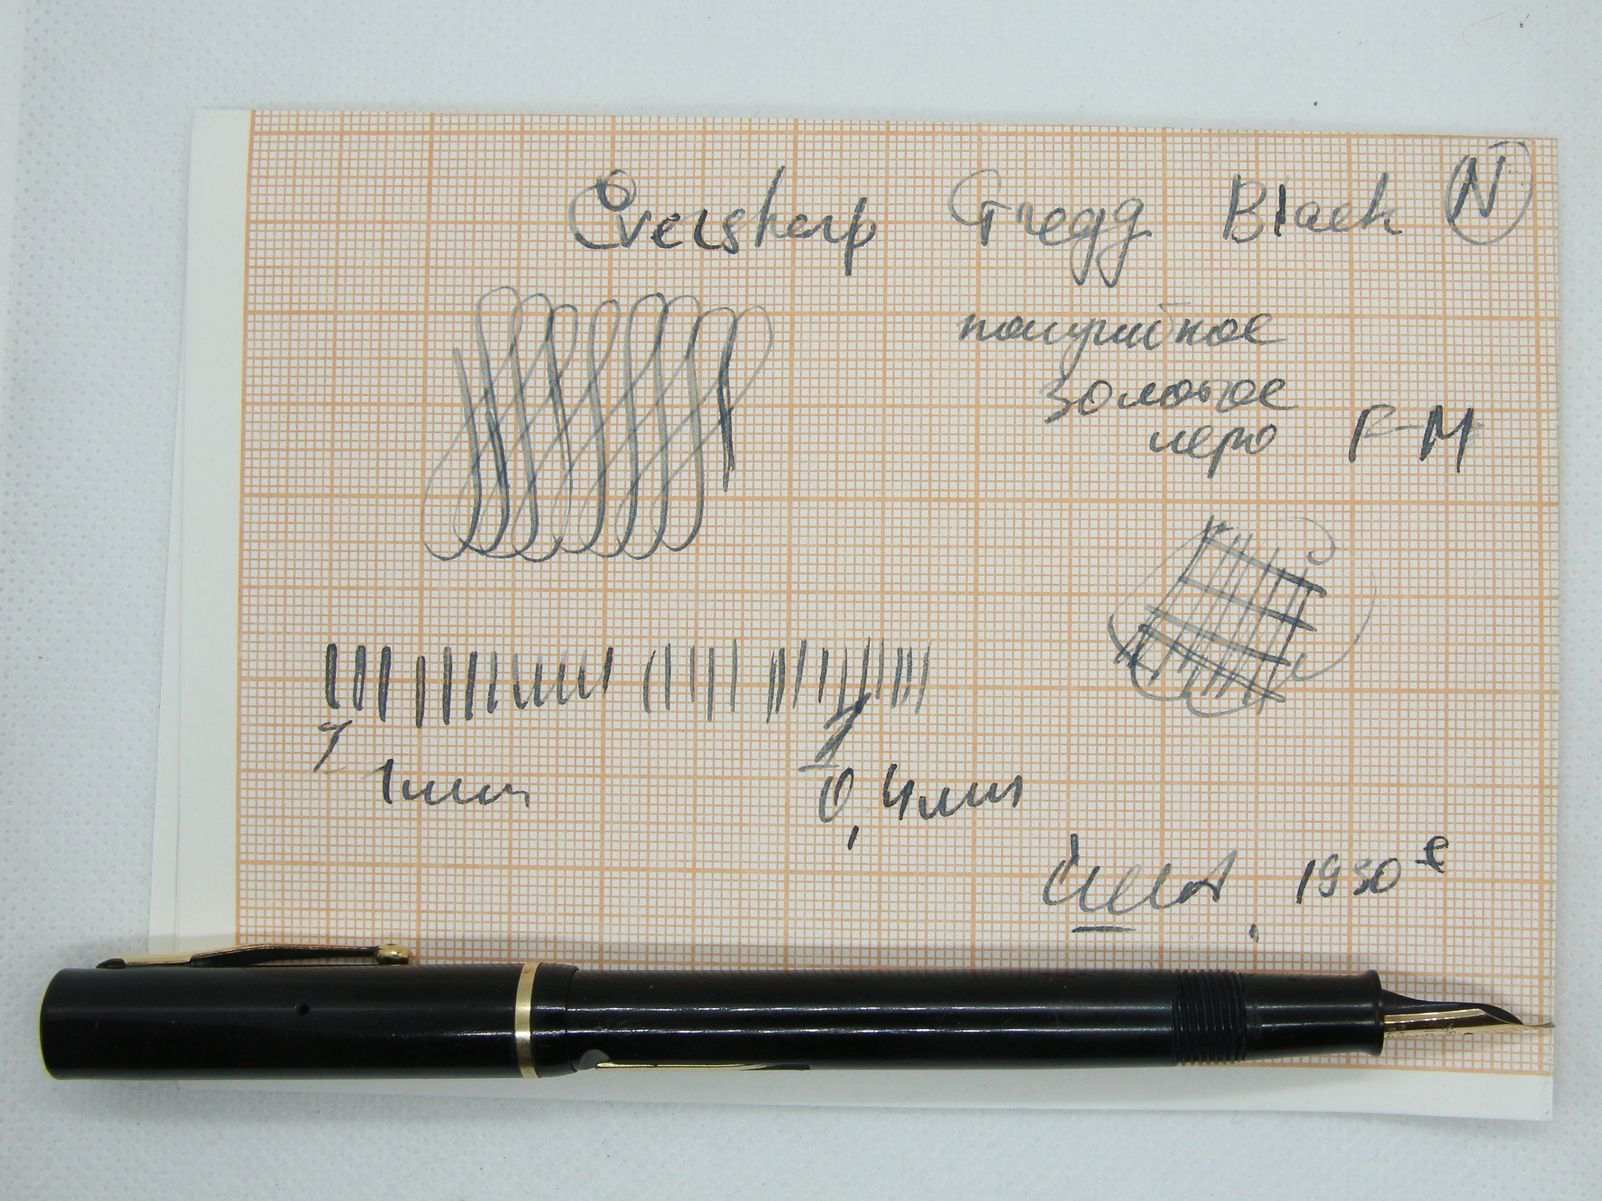 Eversharp Gregg Black N
полугибкое
золотое
перо F-M
1мм
0,4мм
США, 1930е